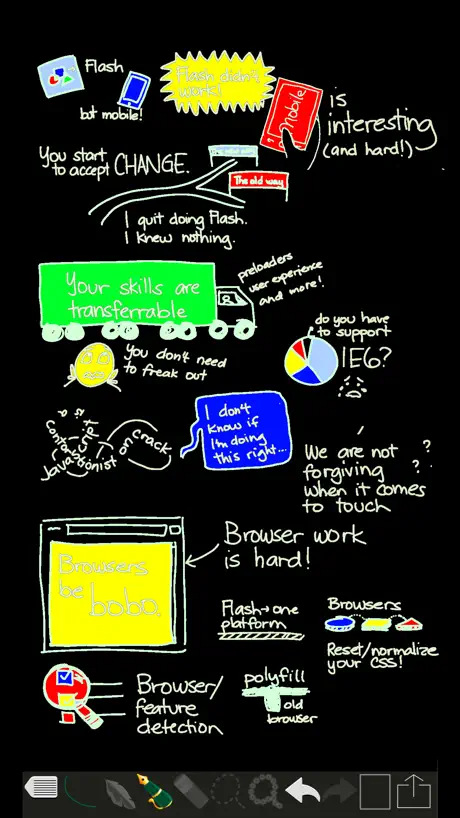 Flash
but mobile!
Flash didn't
work!
Mobile
is
interesting
(and hard!)
You start
to accept CHANGE.
The old way
I quit doing Flash.
I knew nothing.
Your skills are
transferrable
preloaders
user experience
and more!
You don't need
to freak out
do you have
to support
IE6?
JavaScript is a
contortionist on crack
I don't
know if
I'm doing
this right....
We are not
forgiving
when it comes
to touch
? ? ?
Browsers
be
bobo.
Browser work
is hard!
Flash→one
platform
Browsers
Reset/normalize
your CSS!
Browser/
feature
detection
polyfill
old
browser